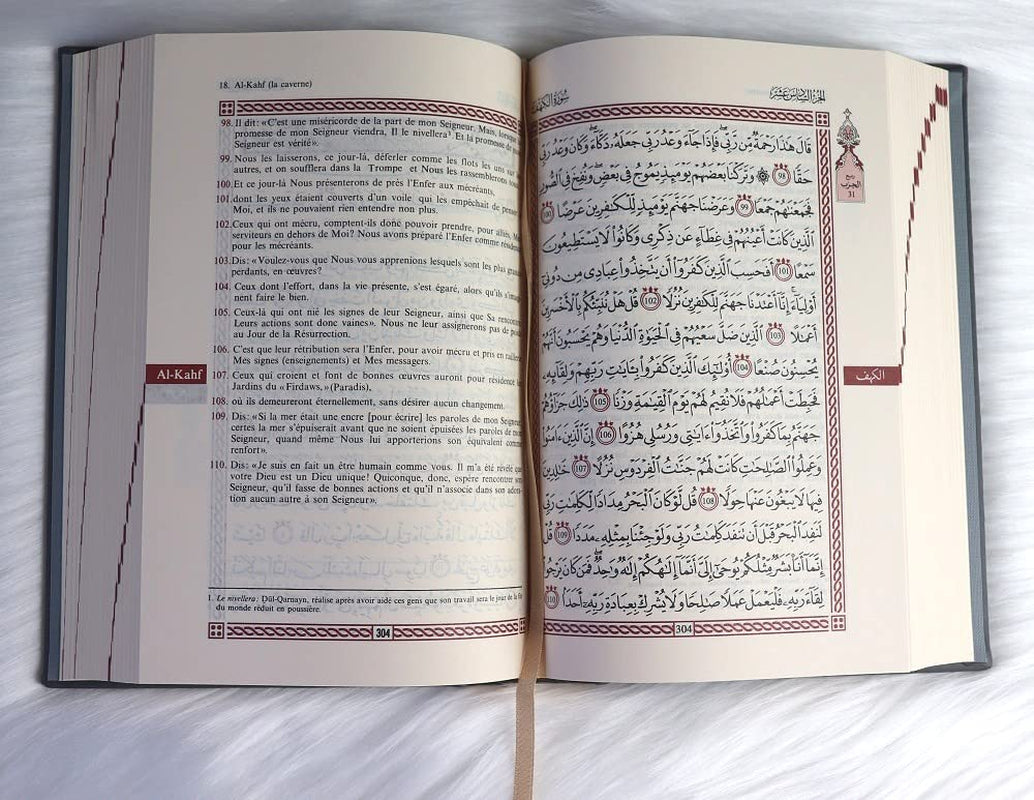 18. Al-Kahf (la caverne)
98. Il dit: «C'est une miséricorde de la part de mon Seigneur. Mais, lorsque la
promesse de mon Seigneur viendra, Il le nivellera¹ Et la promesse de
Seigneur est vérité».
99. Nous les laisserons, ce jour-là, déferler comme les flots les uns sur
autres, et on soufflera dans la Trompe et Nous les rassemblerons
100. Et ce jour-là Nous présenterons de près l'Enfer aux mécréants,
101. dont les yeux étaient couverts d'un voile qui les empêchait de penser
Moi, et ils ne pouvaient rien entendre non plus.
102. Ceux qui ont mécru, comptent-ils donc pouvoir prendre, pour alliés, Mes
serviteurs en dehors de Moi? Nous avons préparé l'Enfer comme
pour les mécréants.
103. Dis: «Voulez-vous que Nous vous apprenions lesquels sont les plus grands
perdants, en œuvres?
104. Ceux dont l'effort, dans la vie présente, s'est égaré, alors qu'ils
nent faire le bien.
105. Ceux-là qui ont nié les signes de leur Seigneur, ainsi que Sa rencontre
Leurs actions sont donc vaines». Nous ne leur assignerons pas de
au Jour de la Résurrection.
106. C'est que leur rétribution sera l'Enfer, pour avoir mécru et pris en
Mes signes (enseignements) et Mes messagers.
107. Ceux qui croient et font de bonnes œuvres auront pour résidence
Jardins du «Firdaws,» (Paradis),
Al-Kahf
108. où ils demeureront éternellement, sans désirer aucun changement.
109. Dis: «Si la mer était une encre [pour écrire] les paroles de mon Seigneur
certes la mer s'épuiserait avant que ne soient épuisées les paroles de mon
Seigneur, quand même Nous lui apporterions son équivalent comme
renfort».
110. Dis: «Je suis en fait un être humain comme vous. Il m'a été révélé que
votre Dieu est un Dieu unique! Quiconque, donc, espère rencontrer son
Seigneur, qu'il fasse de bonnes actions et qu'il n'associe dans son ado-
tion aucun autre à son Seigneur».
1. Le nivellera: Ḏūl-Qarnayn, réalise après avoir aidé ces gens que son travail sera le jour de la fin
du monde réduit en poussière.
304
سُورَةُ الكَهْفِ
الجُزْءُ السَّادِسُ عَشَرَ
ربع
الحزب
31
قَالَ هَٰذَا رَحْمَةٌ مِّن رَّبِّي فَإِذَا جَآءَ وَعْدُ رَبِّي جَعَلَهُۥ دَكَّآءَ وَكَانَ وَعْدُ رَبِّي
حَقًّا 98 ۞ وَتَرَكْنَا بَعْضَهُمْ يَوْمَئِذٍ يَمُوجُ فِي بَعْضٍ وَنُفِخَ فِي الصُّورِ
فَجَمَعْنَٰهُمْ جَمْعًا 99 وَعَرَضْنَا جَهَنَّمَ يَوْمَئِذٍ لِّلْكَٰفِرِينَ عَرْضًا 100
الَّذِينَ كَانَتْ أَعْيُنُهُمْ فِي غِطَآءٍ عَن ذِكْرِي وَكَانُوا۟ لَا يَسْتَطِيعُونَ
سَمْعًا 101 أَفَحَسِبَ الَّذِينَ كَفَرُوٓا۟ أَن يَتَّخِذُوا۟ عِبَادِي مِن دُونِيٓ
أَوْلِيَآءَ إِنَّآ أَعْتَدْنَا جَهَنَّمَ لِلْكَٰفِرِينَ نُزُلًا 102 قُلْ هَلْ نُنَبِّئُكُم بِالْأَخْسَرِينَ
أَعْمَٰلًا 103 الَّذِينَ ضَلَّ سَعْيُهُمْ فِي الْحَيَوٰةِ الدُّنْيَا وَهُمْ يَحْسَبُونَ أَنَّهُمْ
يُحْسِنُونَ صُنْعًا 104 أُو۟لَٰٓئِكَ الَّذِينَ كَفَرُوا۟ بِـَٔايَٰتِ رَبِّهِمْ وَلِقَآئِهِۦ
الكهف
فَحَبِطَتْ أَعْمَٰلُهُمْ فَلَا نُقِيمُ لَهُمْ يَوْمَ الْقِيَٰمَةِ وَزْنًا 105 ذَٰلِكَ جَزَآؤُهُمْ
جَهَنَّمُ بِمَا كَفَرُوا۟ وَاتَّخَذُوٓا۟ ءَايَٰتِي وَرُسُلِي هُزُوًا 106 إِنَّ الَّذِينَ ءَامَنُوا۟
وَعَمِلُوا۟ الصَّٰلِحَٰتِ كَانَتْ لَهُمْ جَنَّٰتُ الْفِرْدَوْسِ نُزُلًا 107 خَٰلِدِينَ
فِيهَا لَا يَبْغُونَ عَنْهَا حِوَلًا 108 قُل لَّوْ كَانَ الْبَحْرُ مِدَادًا لِّكَلِمَٰتِ رَبِّي
لَنَفِدَ الْبَحْرُ قَبْلَ أَن تَنفَدَ كَلِمَٰتُ رَبِّي وَلَوْ جِئْنَا بِمِثْلِهِۦ مَدَدًا 109 قُلْ
إِنَّمَآ أَنَا۠ بَشَرٌ مِّثْلُكُمْ يُوحَىٰٓ إِلَيَّ أَنَّمَآ إِلَٰهُكُمْ إِلَٰهٌ وَٰحِدٌ فَمَن كَانَ يَرْجُوا۟
لِقَآءَ رَبِّهِۦ فَلْيَعْمَلْ عَمَلًا صَٰلِحًا وَلَا يُشْرِكْ بِعِبَادَةِ رَبِّهِۦٓ أَحَدًۢا 110
304